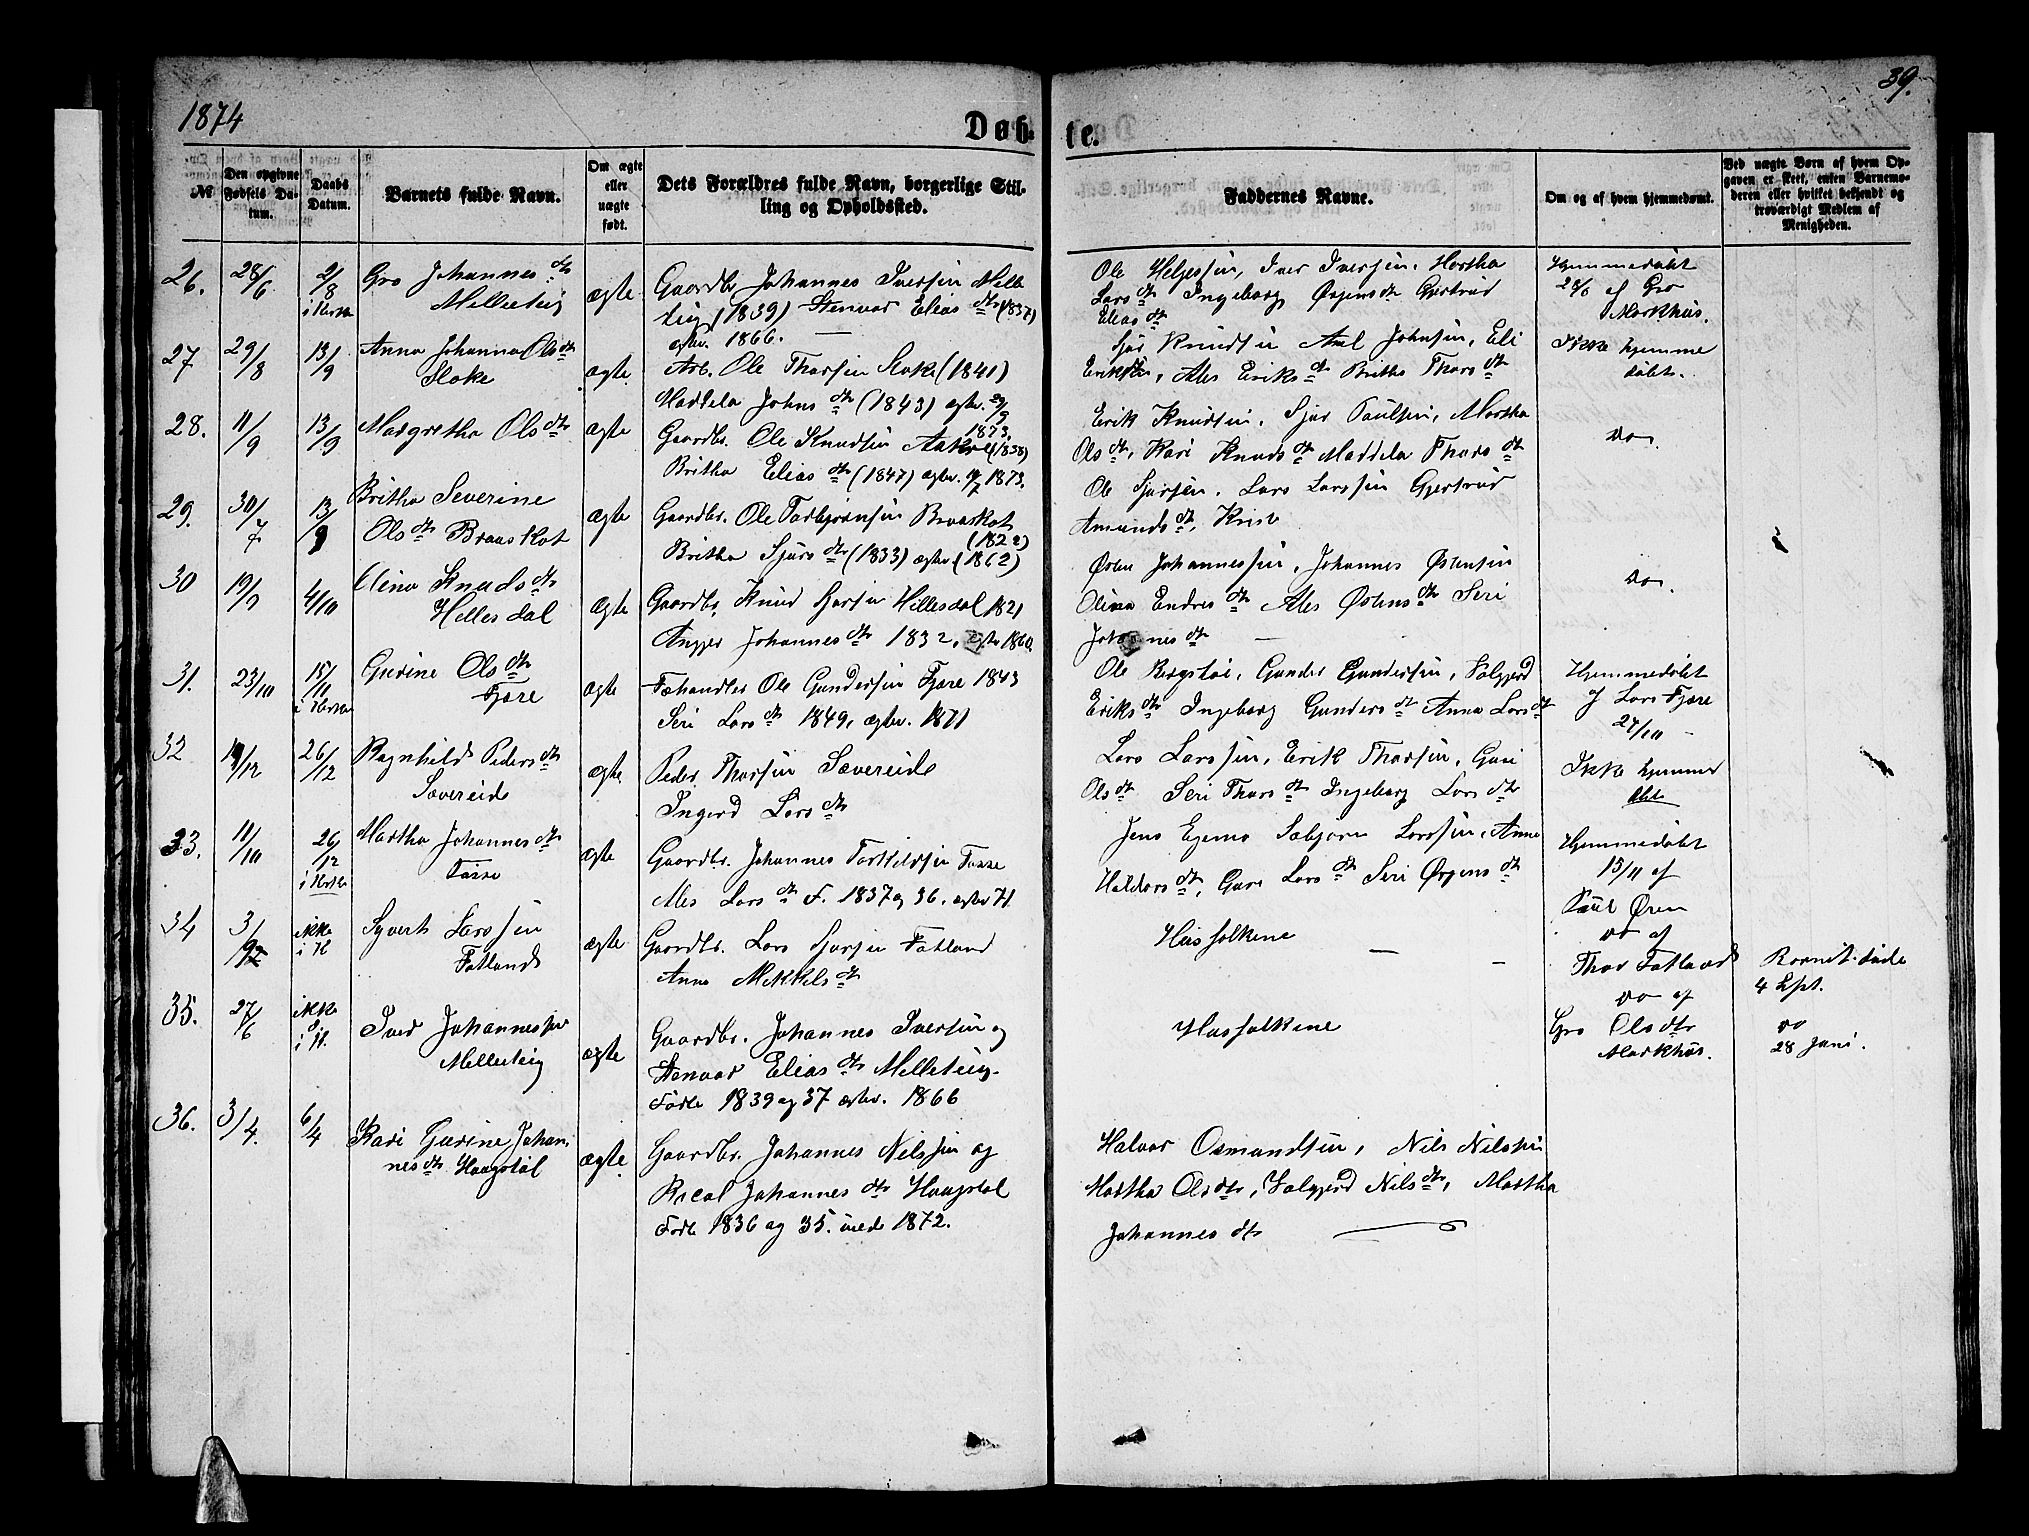 1874
Døb-
te.
39.
№
Den opgivne Fødsels Datum.
Daabs Datum.
Barnets fulde Navn.
Om ægte eller uægte født.
Dets Forældres fulde Navn, borgerlige Stilling og Opholdssted.
Faddernes Navne.
Om og af hvem hjemmedøbt.
Ved uægte Børn af hvem Opgaven er skeet, enten Barnemoderen eller hvilket bekjendt og troværdigt Medlem af Menigheden.
26. 28/6 2/8 Gro Johannes dtr
i Kirke Melleteig ægte
Gaardbr. Johannes Iversen Melle
teig (1839) Stenvor Elias dtr (1837)
ægtev. 1866. —
Ole Helgessen, Iver Iversen, Martha
Lars dtr Ingeborg Ørjens dtr Gjertrud
Elias dtr
Hjemmedøbt
28/6 af Gro
Markhus.
27. 29/8 13/9 Anna Johanna Ols dtr
Stoke ægte
Arb. Ole Thorsen Stoke (1841)
Maddela Johns dtr (1843) ægtev.
1873.
Sjur Knudsen Axel Johnsen, Eli
Eriks dtr, Ales Eriks dtr Britha Thors dtr
Ikke hjemme
døbt.
28. 11/9 13/9 Margretha Ols dtr ægte
Gaardbr. Ole Knudsen Aakre (1838)
Britha Elias dtr (1847) ægtev. 1873.
Erik Knudsen, Sjur Paulsen, Martha
Ols dtr, Kari Knuds dtr Maddela Thors dtr
do
29. 30/7 13/9 Britha Severine
Ols dtr Braaskot ægte
Gaardbr. Ole Torbjørnsen Braaskot
(1822)
Britha Sjurs dtr (1833) ægtev. (1862)
Ole Sjursen, Lars Larssen Gjertrud
Amunds dtr,
30 19/9 4/10 Elina Knuds dtr
Hellesdal ægte
Gaardbr. Knud Hellesdal 1821
Johannes dtr 1832, ægtev 1860.
Østen Johannessen, Johannes Østensen
Olina Endres dtr Ales Østens dtr Seri
Johannes dtr —
do
31. 23/10 15/11 Gurine Ols dtr
i Kirke Fjære ægte
Fæhandler Ole Gundersen Fjære 1843
Seri Lars dtr 1849, ægtev. 1871
Ole Bergstøl, Gunder Gundersen, Valgjerd
Eriks dtr Ingeborg Gunders dtr Anna Lars dtr
Hjemmedøbt
af Lars Fjære
27/10 —
32 19/12 26/12 Ragnhild Peders dtr
Sævereide ægte
Peder Thorsen Sævereide
Ingerd Lars dtr
Lars Larssen, Erik Thorsen, Guri
Ols dtr Seri Thors dtr Ingeborg Lars dtr
Ikke hjemme
døbt
33. 11/10 26/12 Martha Johannes dtr
i Kirke Tosse ægte
Gaardbr. Johannes Torkildsen Tosse
Ales Lars dtr F. 1837 og 36. ægtev 71.
Jens Sæbjørn Larssen, Anna
Haldors dtr, Guri Lars dtr Seri Ørjens dtr
Hjemmedøbt
15/11 af
Paul Øren
34 3/9 ikke Syvert Larssen
i K Fatland ægte
Gaardbr. Lars Fatland
Anna Mikkels dtr
Husfolkene — —
do af
Thor Fatland
Barnet døde
4 Spt.
35. 27/6 ikke Iver Johannessen
i K. Melleteig ægte
Gaardbr. Johannes Iversen og
Stenvor Elias dtr Melleteig.
Fødte 1839 og 37 ægtev. 1866
Husfolkene
do af
Gro Ols dtr
Markhus.
do
28 Juni.
36. 3/4. 6/4 Kari Gurine Johan
nes dtr Haugstøl ægte
Gaardbr. Johannes Nilssen og
Johannes dtr Haugstøl
Fødte 1836 og 35. viede 1872.
Halvor Osmundsen, Nils Nilssen
Martha Ols dtr, Valgjerd Nils dtr, Martha
Johannes dtr